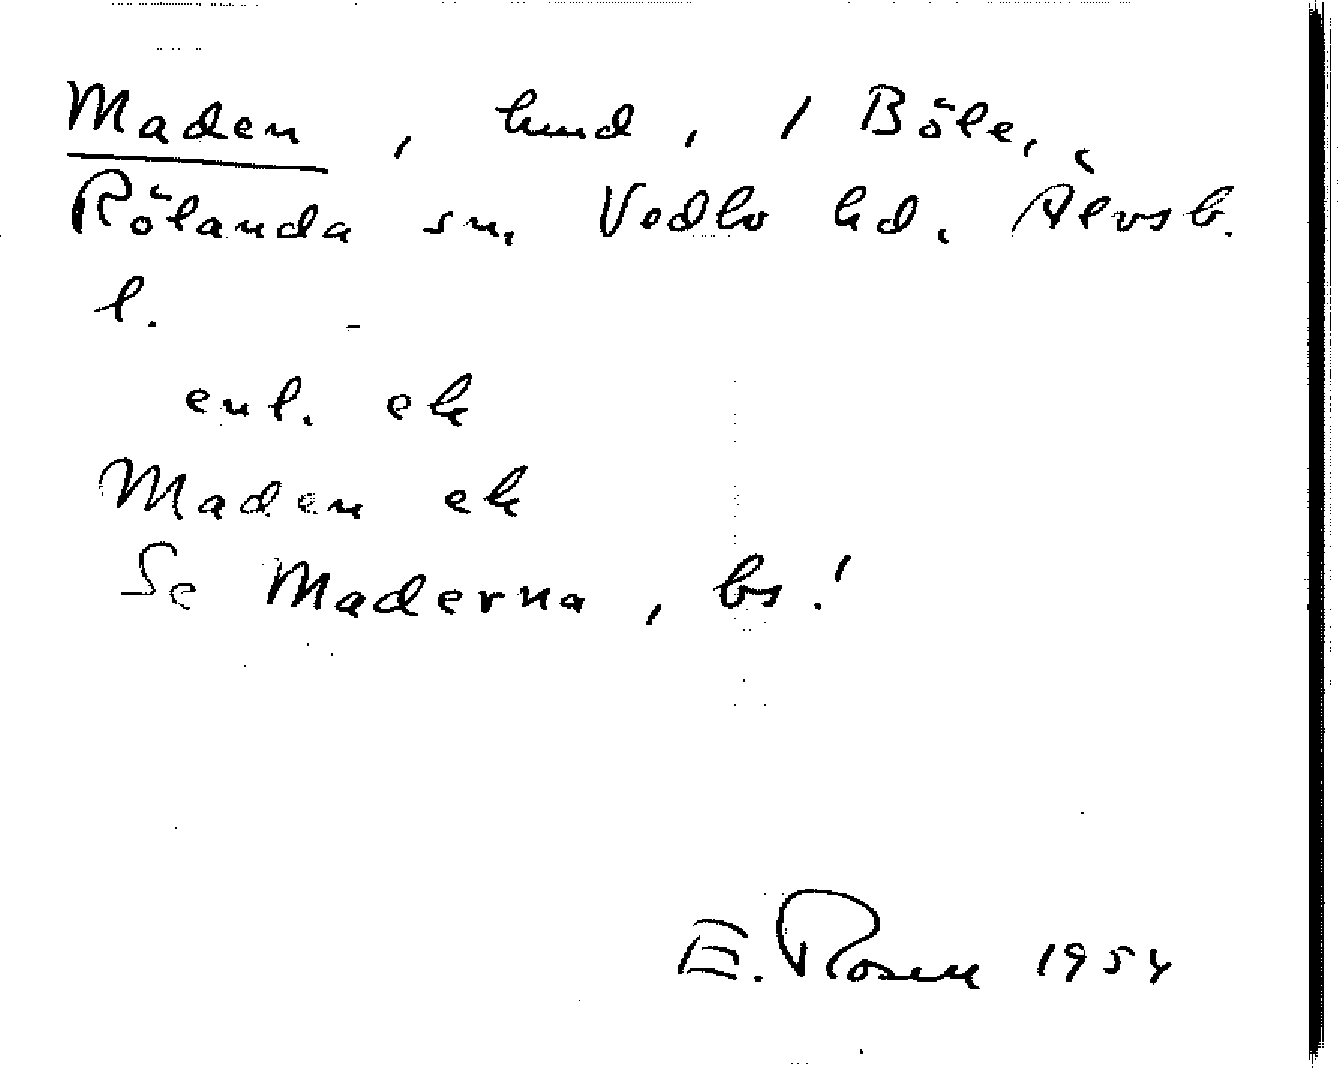 Maden, hmd, 1 Böle,
Rölanda sn, Vedbo hd. Älvsb.
l. -
enl. ek
Maden ek
Se Maderna, bs!
E. Rosell 1954